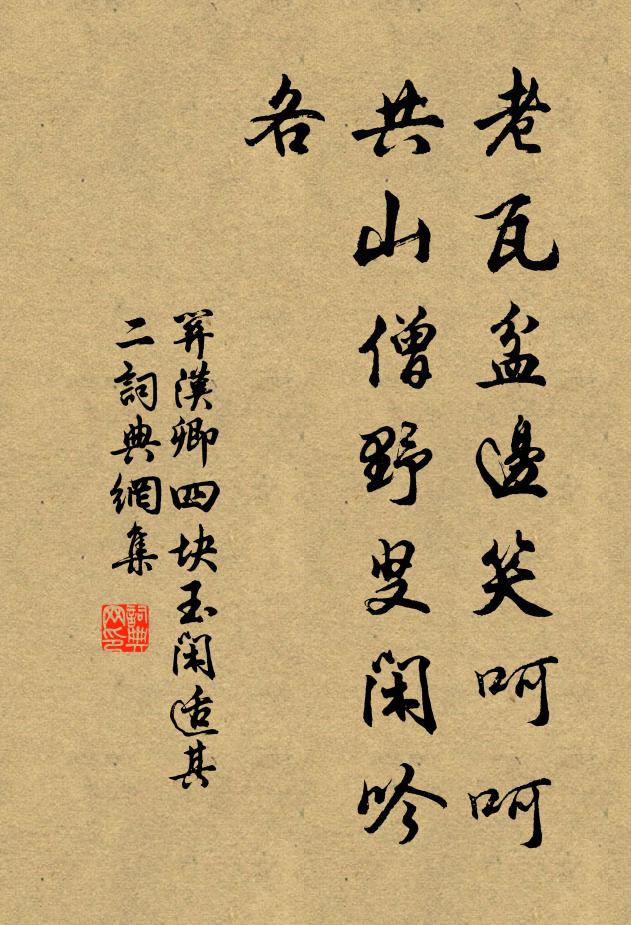 老瓦盆邊笑呵呵
共山僧野叟閑吟
各
關漢卿四块玉閑适其
二詞典網集
詞典网印